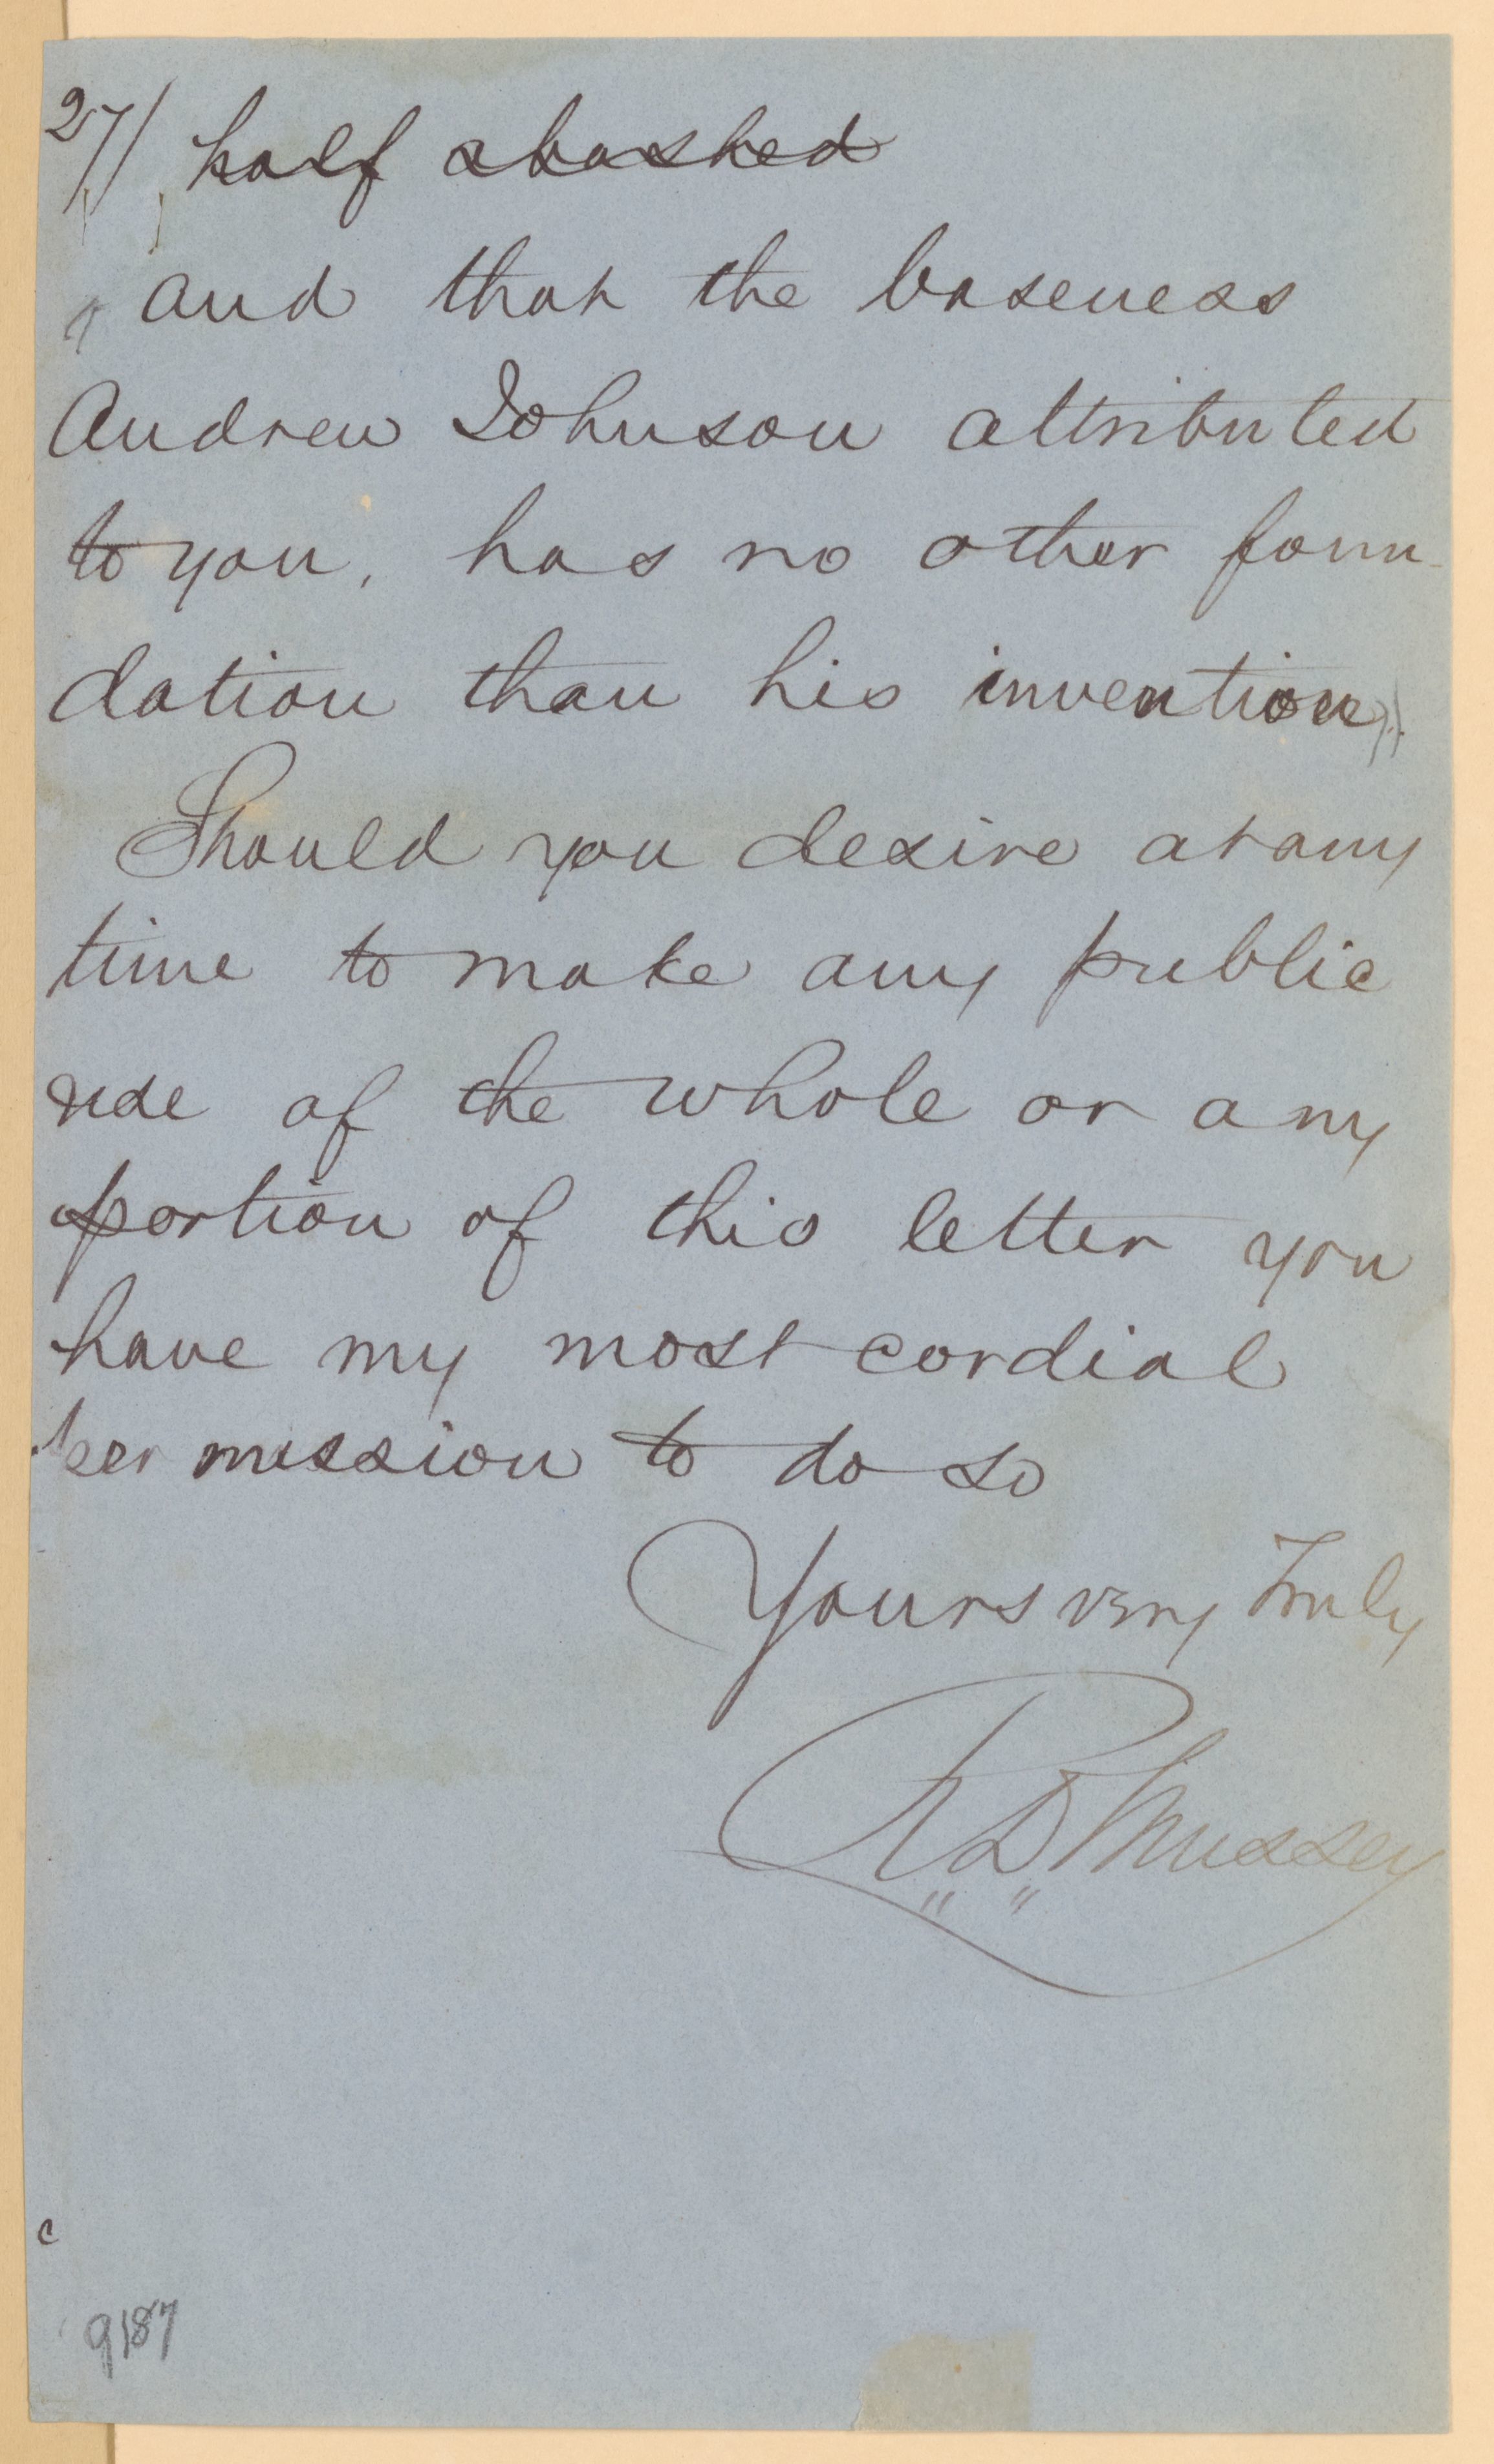 27// half abashed
and that the baseness
Andrew Johnson attributed
to you, has no other foun-
dation than his invention
Should you desire at any
time to make any public
use of the whole or any
portion of this letter you
have my most cordial
permission to do so
Yours very Truly
R.D. Mussey
c
9187